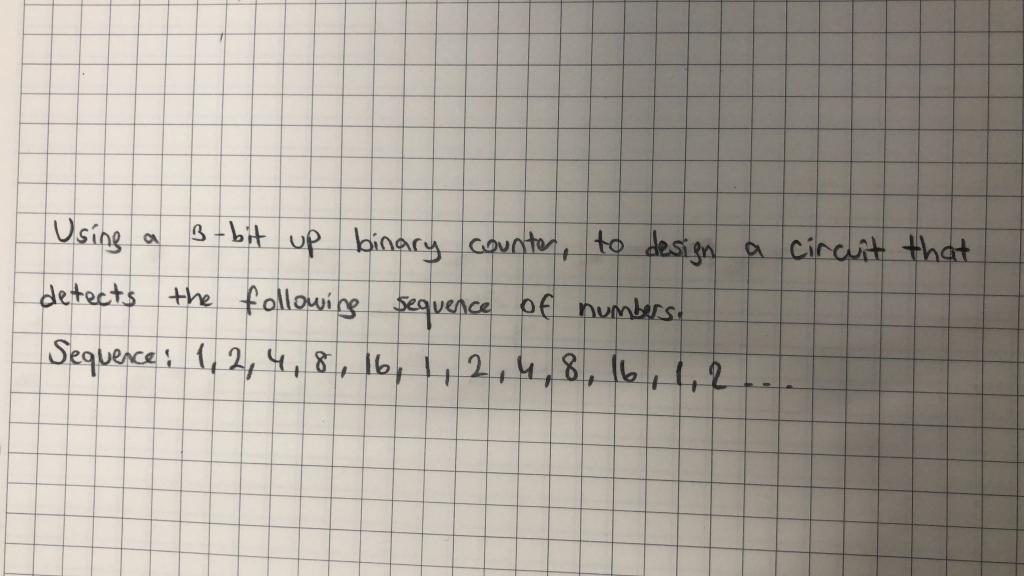 Using a 3-bit up binary counter, to design a circuit that
detects the following sequence of numbers.
Sequence: 1, 2, 4, 8, 16, 1, 2, 4, 8, 16, 1, 2 ...